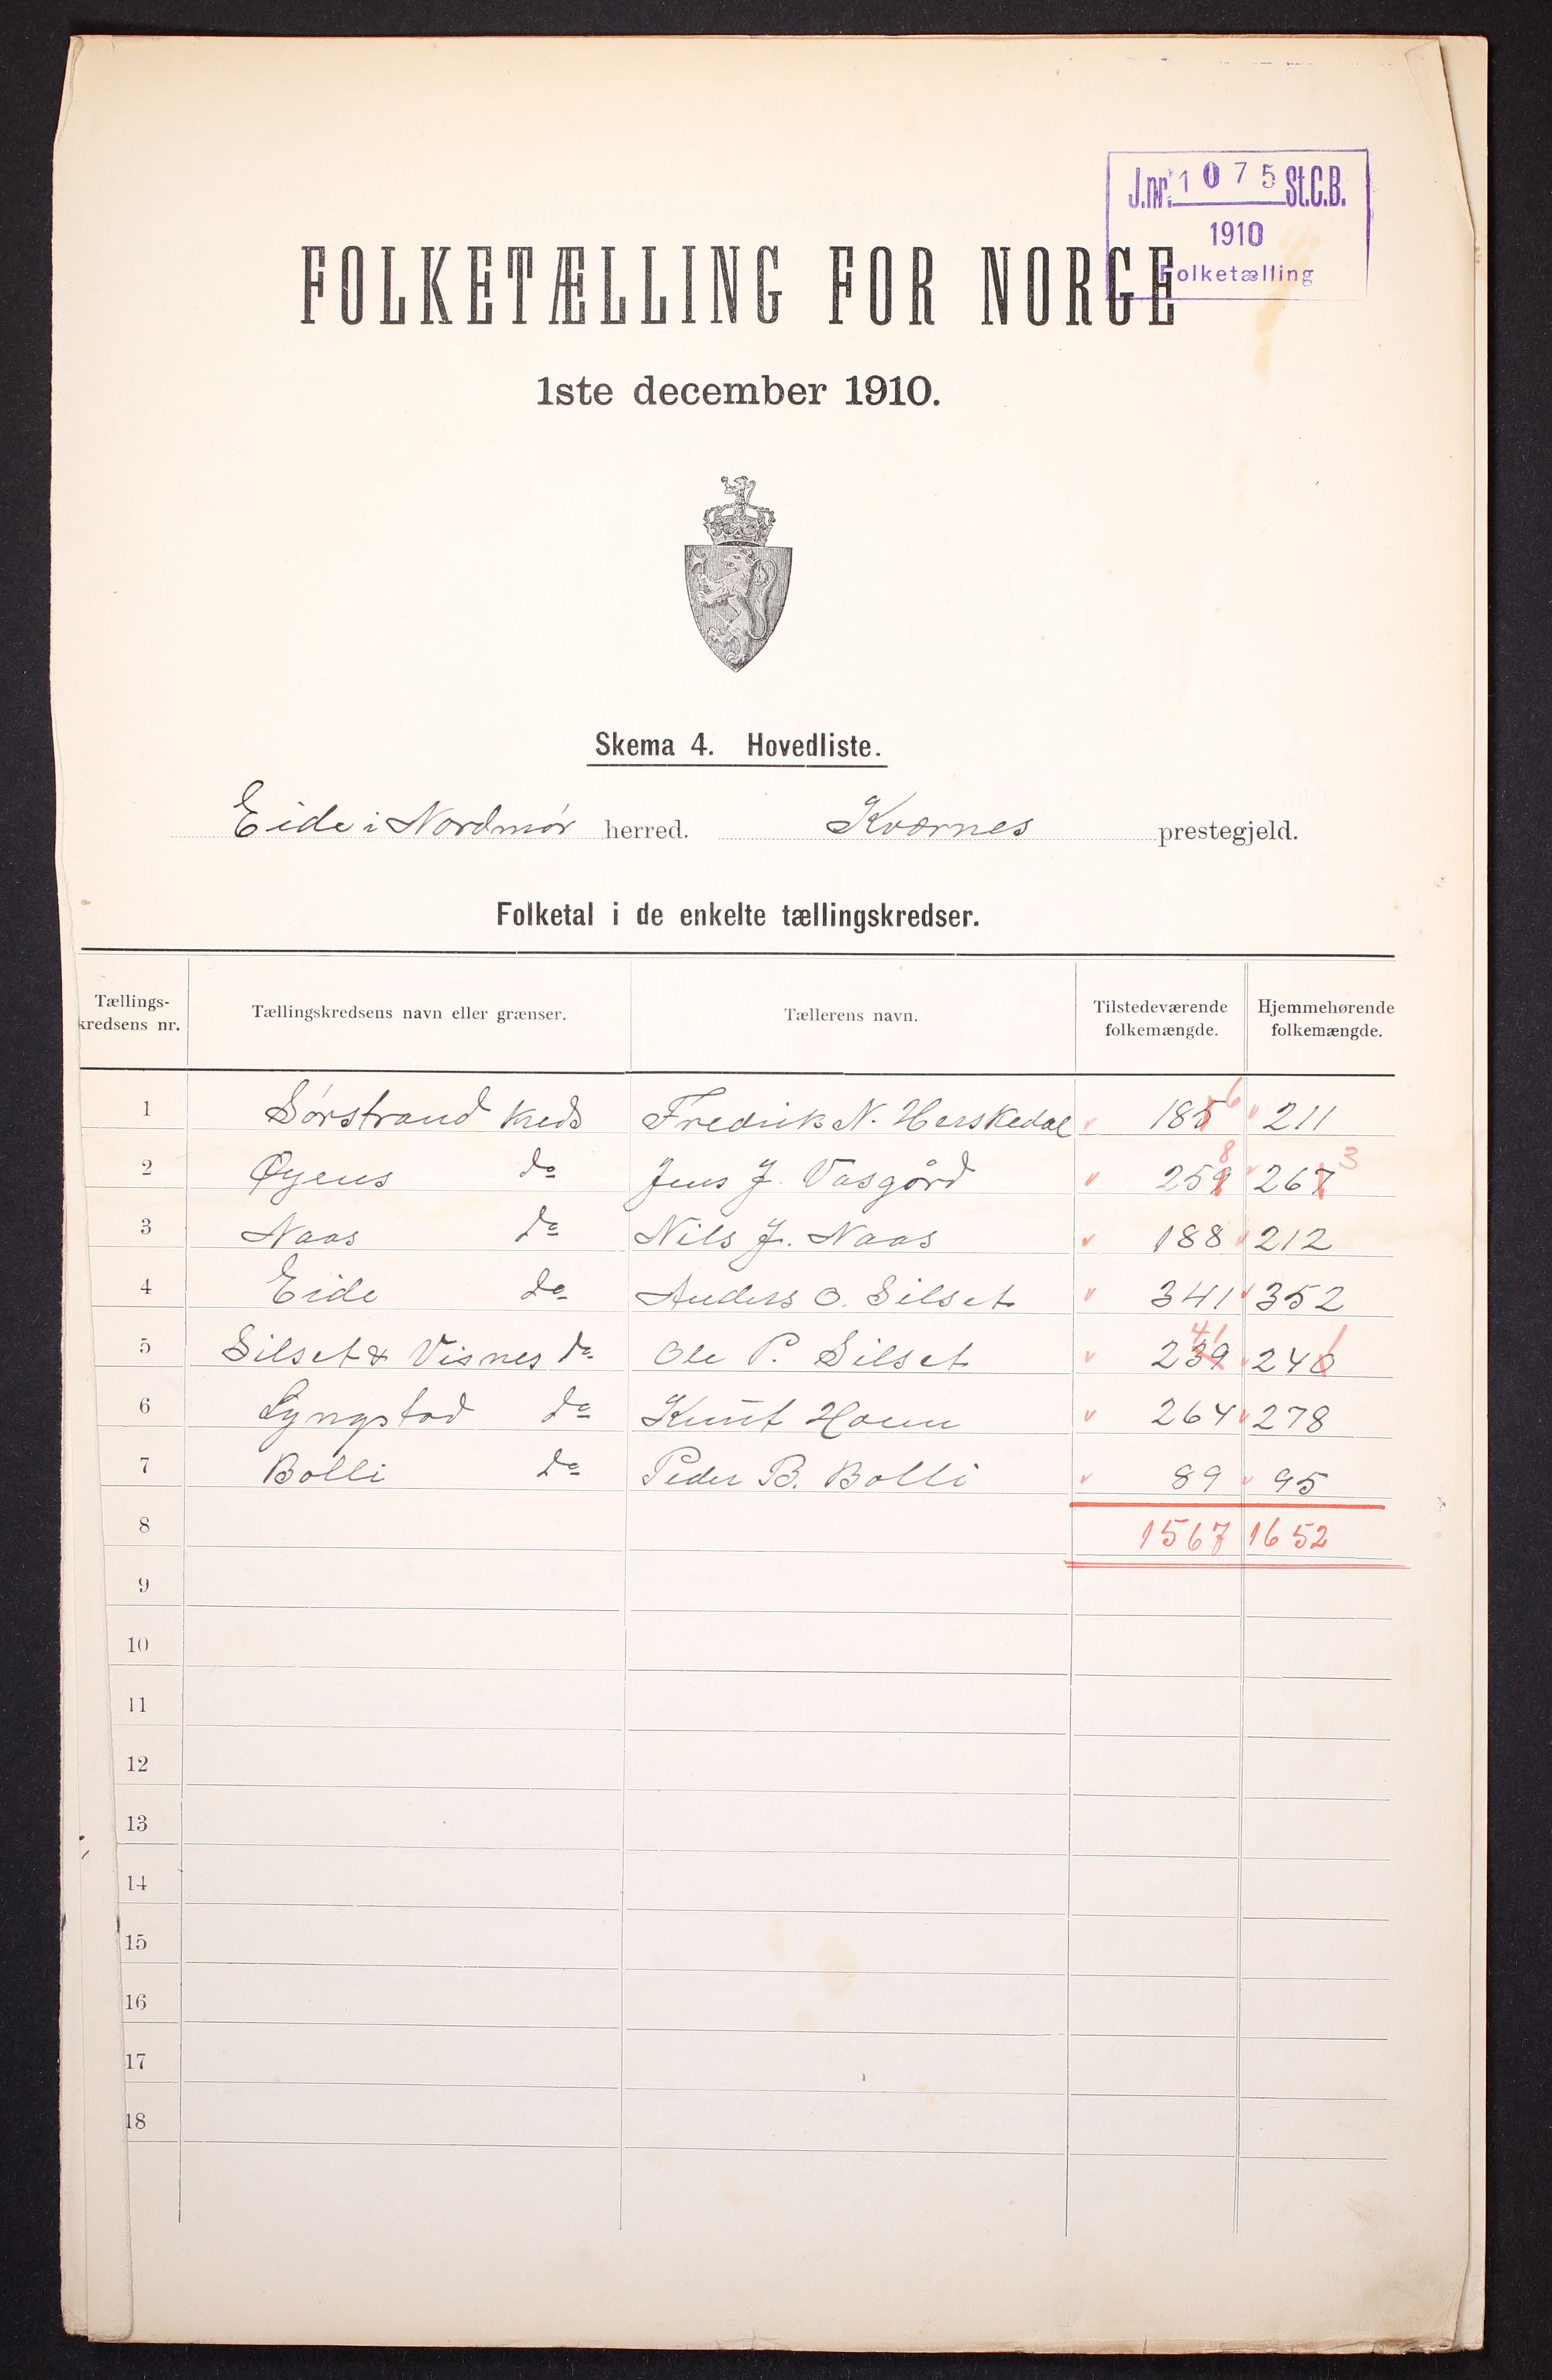 J.nr. 1075 St.C.B.
1910
Folketælling
FOLKETÆLLING FOR NORGE
1ste december 1910.
Skema 4. Hovedliste.
Eide i Nordmør herred. Kværnes prestegjeld.
Folketal i de enkelte tællingskredser.
Tællings-kredsens nr. Tællingskredsens navn eller grænser. Tællerens navn. Tilstedeværende folkemængde. Hjemmehørende folkemængde.
1 Sørstrand kreds Fredrik N. Herskedal 185 6 211
2 Øyens do Jens J. Vasgård 259 8 267 3
3 Naas do Nils J. Naas 188 212
4 Eide do Anders O. Silset 341 352
5 Silset & Visnes do Ole P. Silset 239 41 240 1
6 Lyngstad do Knut Houn 264 278
7 Bolli do Peder B. Bolli 89 95
8 1567 1652
9
10
11
12
13
14
15
16
17
18